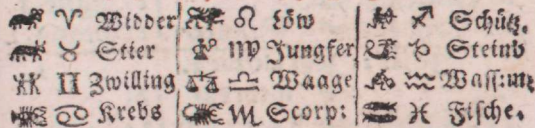 ♈ Widder ♌ Löw ♐ Schütz.
♉ Stier ♍ Jungfer ♑ Steinb
♊ Zwilling ♎ Waage ♒ Wass:mz
♋ Krebs ♏ Scorp: ♓ Fische.